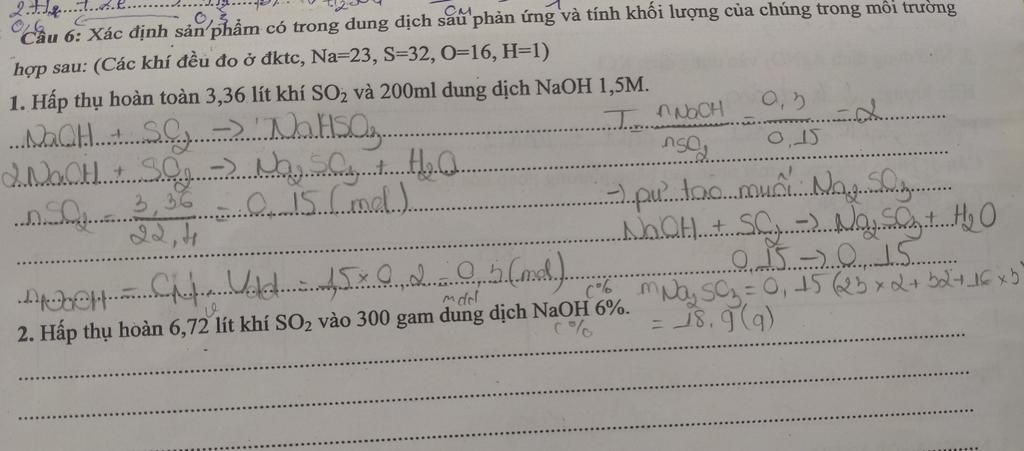 0,6 0,3 CM
Câu 6: Xác định sản phẩm có trong dung dịch sau phản ứng và tính khối lượng của chúng trong môi trường
hợp sau: (Các khí đều đo ở đktc, Na=23, S=32, O=16, H=1)
1. Hấp thụ hoàn toàn 3,36 lít khí SO₂ và 200ml dung dịch NaOH 1,5M.
NaOH + SO₂ → NaHSO₃
T = nNaOH / nSO₂ = 0,3 / 0,15 = 2
2NaOH + SO₂ → Na₂SO₃ + H₂O
nSO₂ = 3,36 / 22,4 = 0,15 (mol)
→ pư tạo muối: Na₂SO₃
NaOH + SO₂ → Na₂SO₃ + H₂O
0,15 → 0,15
nNaOH = CM . Vdd = 1,5 x 0,2 = 0,3 (mol)
mNa₂SO₃ = 0,15 (23 x 2 + 32 + 16 x 3)
= 18,9 (g)
v mdd C%
2. Hấp thụ hoàn 6,72 lít khí SO₂ vào 300 gam dung dịch NaOH 6%.
C%